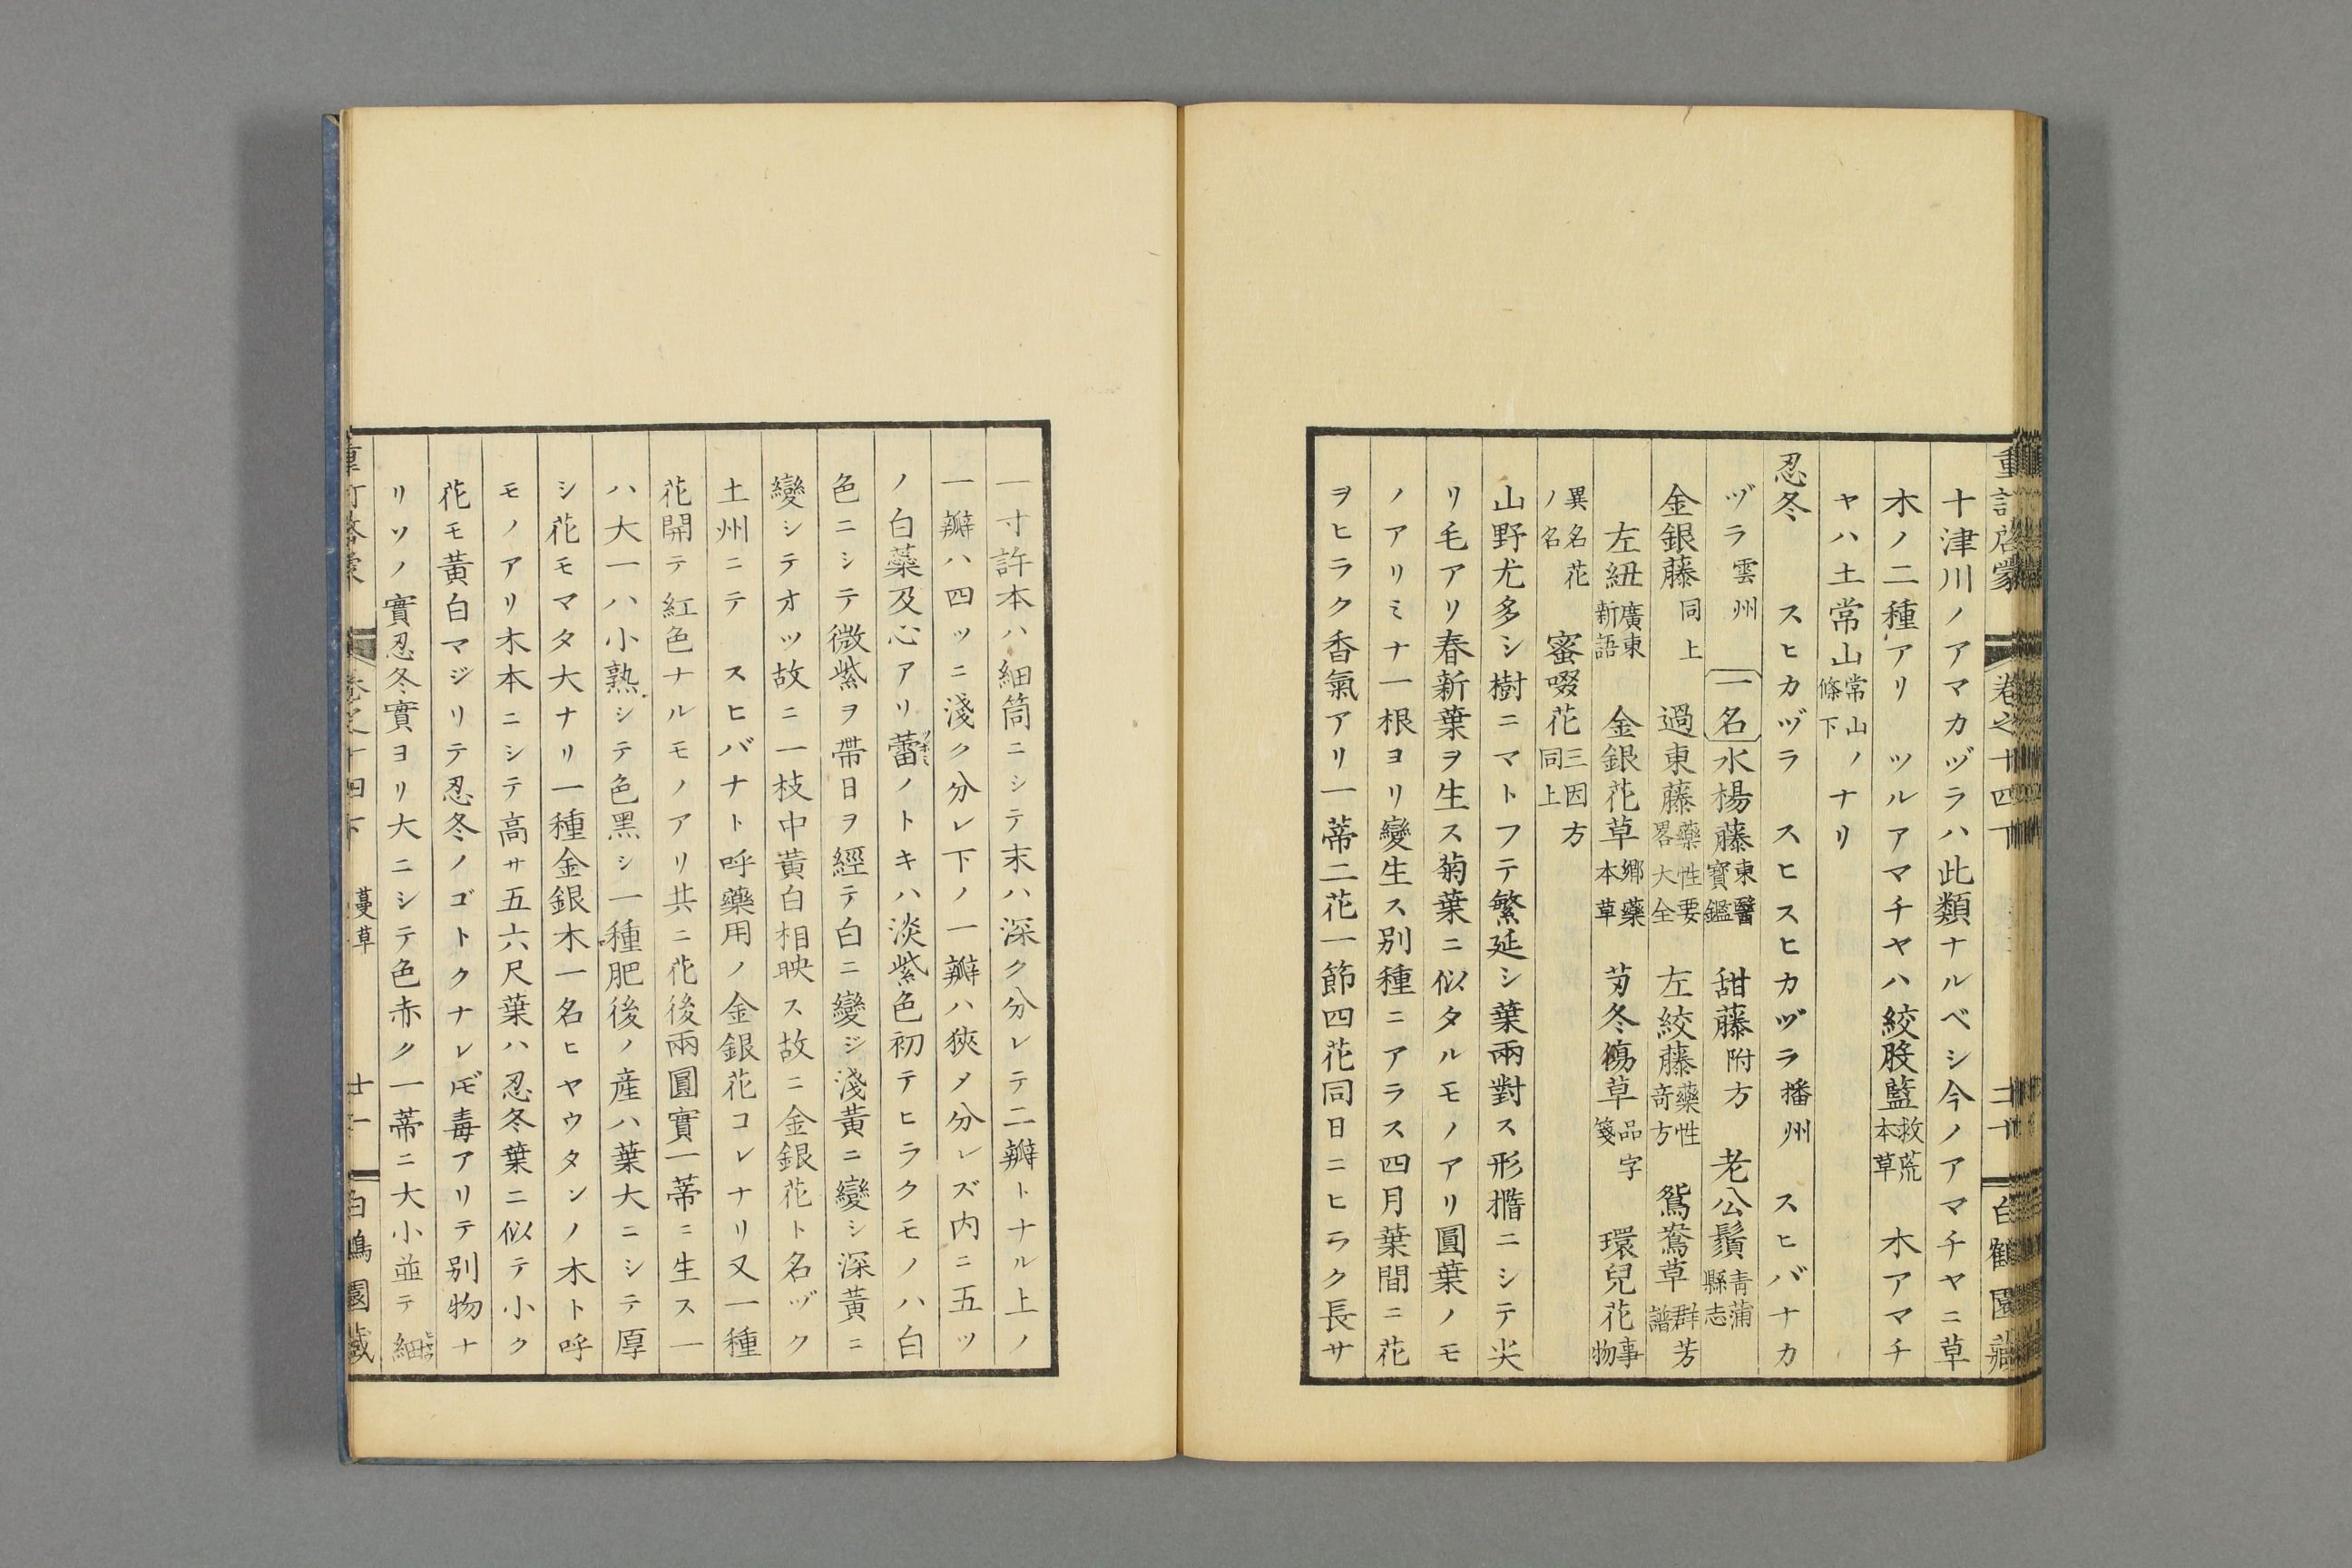 重訂啓蒙 卷之十四下 二十 白鶴園藏
十津川ノアマカヅラハ此類ナルベシ今ノアマチヤニ草
木ノ二種アリ ツルアマチヤハ絞股藍救荒本草 木アマチ
ヤハ土常山常山ノ條下ナリ
忍冬 スヒカヅラ スヒスヒカヅラ播州 スヒバナカ
ヅラ雲州 一名水楊藤東醫寶鑑 甜藤附方 老公鬚青蒲縣志
金銀藤同上 過東藤藥性要畧大全 左絞藤藥性奇方 鴛鴦草群芳譜
左紐廣東新語 金銀花草鄕藥本草 芀冬傷草品字箋 環兒花事物
異名花ノ名 蜜啜花三因方同上
山野尤多シ樹ニマトフテ繁延シ葉兩對ス形橢ニシテ尖
リ毛アリ春新葉ヲ生ス菊葉ニ似タルモノアリ圓葉ノモ
ノアリミナ一根ヨリ變生ス別種ニアラス四月葉間ニ花
ヲヒラク香氣アリ一蒂二花一節四花同日ニヒラク長サ
一寸許本ハ細筒ニシテ末ハ深ク分レテ二瓣トナル上ノ
一瓣ハ四ツニ淺ク分レ下ノ一瓣ハ狹メ分レズ内ニ五ツ
ノ白蘂及心アリ蕾ツボミノトキハ淡紫色初テヒラクモノハ白
色ニシテ微紫ヲ帶日ヲ經テ白ニ變ジ淺黃ニ變シ深黃ニ
變シテオツ故ニ一枝中黃白相映ス故ニ金銀花ト名ヅク
土州ニテ スヒバナト呼藥用ノ金銀花コレナリ又一種
花開テ紅色ナルモノアリ共ニ花後兩圓實一蒂ニ生ス一
ハ大一ハ小熟シテ色黑シ一種肥後ノ產ハ葉大ニシテ厚
シ花モマタ大ナリ一種金銀木一名ヒヤウタンノ木ト呼
モノアリ木本ニシテ高サ五六尺葉ハ忍冬葉ニ似テ小ク
花モ黃白マジリテ忍冬ノゴトクナレ𪜈毒アリテ別物ナ
リソノ實忍冬實ヨリ大ニシテ色赤ク一蒂ニ大小並テ細
卷之十四下 蔓草 園藏